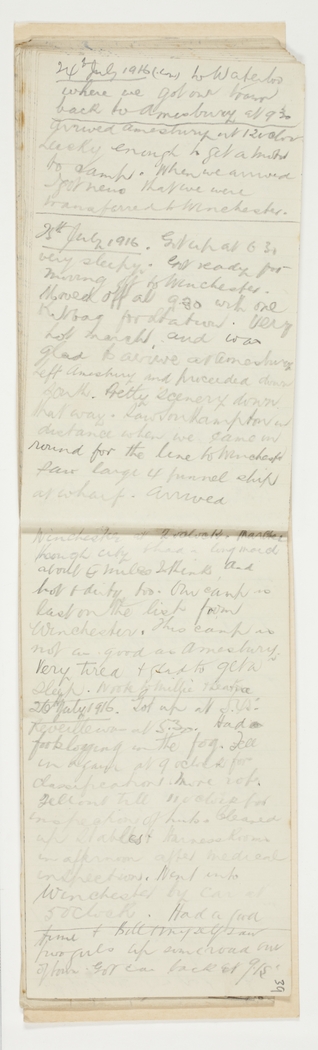 24th July 1916 (con) to Waterloo
where we got our train
back to Amesbury at 9 30
arrived Amesbury at 12 oclock
Lucky enough to get a motor
to camp. When we arrived
I got news that we were
transferred to Winchester.
25th July 1916. Got up at 6 30
very sleepy. Got ready for
moving off to Winchester.
Moved off at 9 30 with one
kit bag for station. Very
hot march, and was
glad to arrive at Amesbury
Left Amesbury and proceeded down
south. Pretty scenery down
that way. Saw Sonhampton in
distance when we came in
round for the line to Winchester
Saw large 4 funnel ship
at wharf. Arrived
Winchester &
though city & had a long
about 5 miles I think, and
hot & dirty too. Our camp is
last on the list from
Winchester. This camp is
not as good as Amesbury.
Very tired & glad to get to
sleep. Wrote to Millie
26 July 1916. Got up at
at 5.30. Had a
in the fog. Fell
in again at 9 oclock for
classification. More rot.
Fell out till 11 oclock for
inspection of huts. Cleaned
up Stables & Harness Rooms
in afternoon after medical
inspection. Went into
Winchester by car at
5 oclock. Had a good
time & Bill & myself saw
two girls up some road out
of town. Got car back at 9/15
39